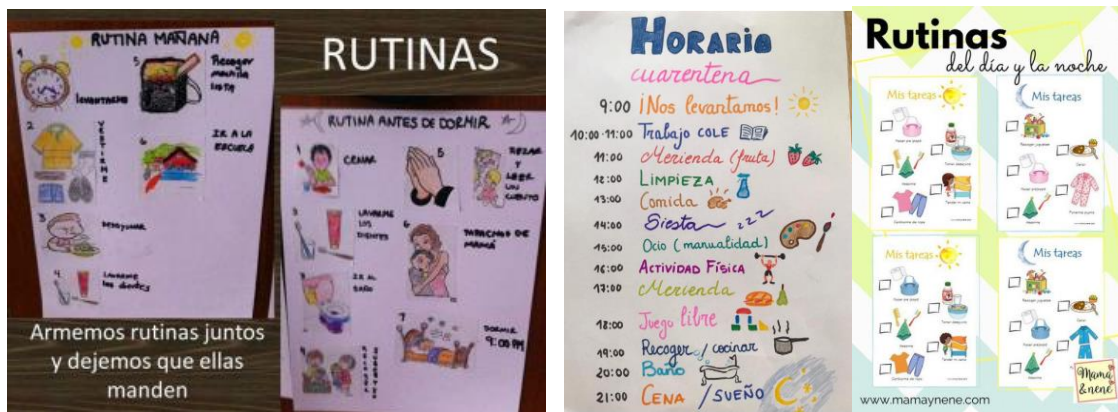 RUTINAS
RUTINA MAÑANA
1
LEVANTARME
2
VESTIRME
3
DESAYUNAR
4
LAVARME
los dientes
5
Recoger
mochila
lista
6
IR A LA
ESCUELA
RUTINA ANTES DE DORMIR
CENAR
3
LAVARME
LOS
DIENTES
IR AL
BAÑO
5
REZAR
Y
LEER
UN
CUENTO
6
DE
MAMÁ
7
DORMIR
9:00 PM
Armemos rutinas juntos
y dejemos que ellas
manden
HORARIO
cuarentena
9:00 ¡Nos levantamos!
10:00-11:00 Trabajo COLE
11:00 Merienda (fruta)
12:00 LIMPIEZA
13:00 Comida
14:00 Siesta zzz
15:00 Ocio (manualidad)
16:00 ACTIVIDAD FÍSICA
17:00 Merienda
18:00 Juego libre
19:00 Recoger / cocinar
20:00 Baño
21:00 CENA / SUEÑO
Rutinas
del día y la noche
Mis tareas
Mis tareas
Mis tareas
Mis tareas
Mamá
&nene
www.mamaynene.com